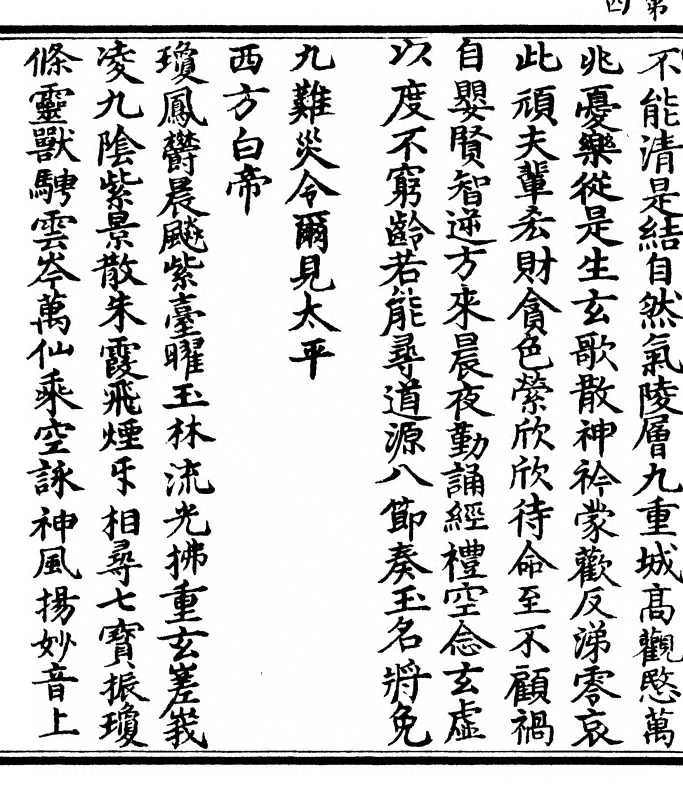 不能清是結自然氣陵層九重城高觀愍萬
兆憂樂從是生玄歌散神衿蒙歡反涕零哀
此頑夫輩忝財貪色縈欣欣待命至不顧禍
自嬰賢智逆方來晨夜勤誦經禮空念玄虛
以度不窮齡若能尋道源八節奏玉名將免
九難災令爾見太平
西方白帝
瓊鳳欝晨颷紫臺曜玉林流光拂重玄嵳峩
凌九陰紫景散朱霞飛煙牙相尋七寳振瓊
條靈獸騁雲岑萬仙乘空詠神風揚妙音上